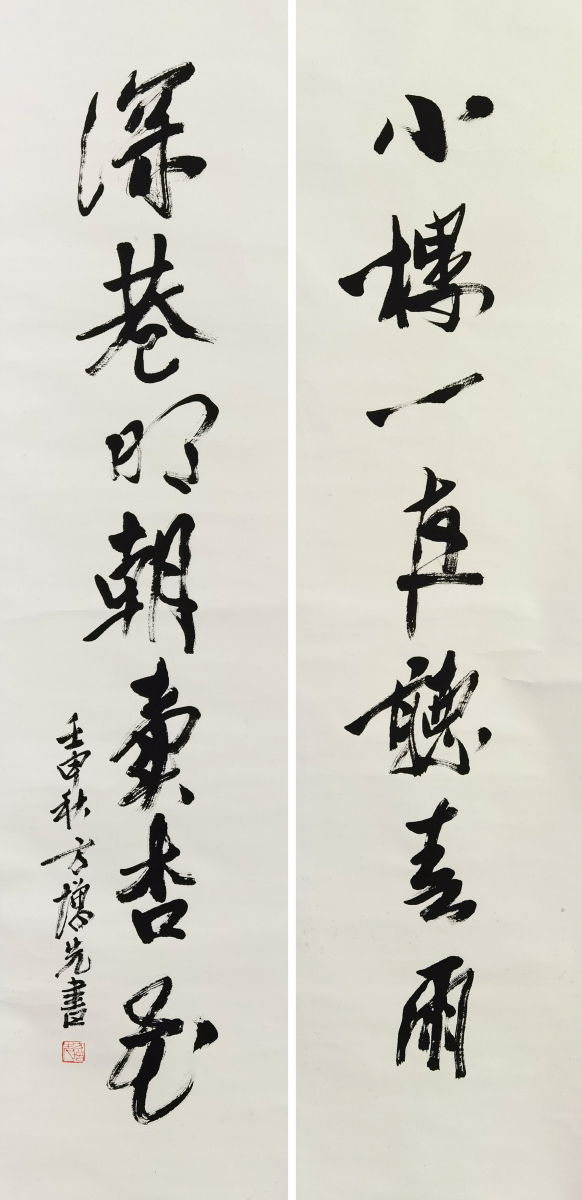 小樓一夜聽春雨
深巷明朝賣杏花
壬申秋方增先書